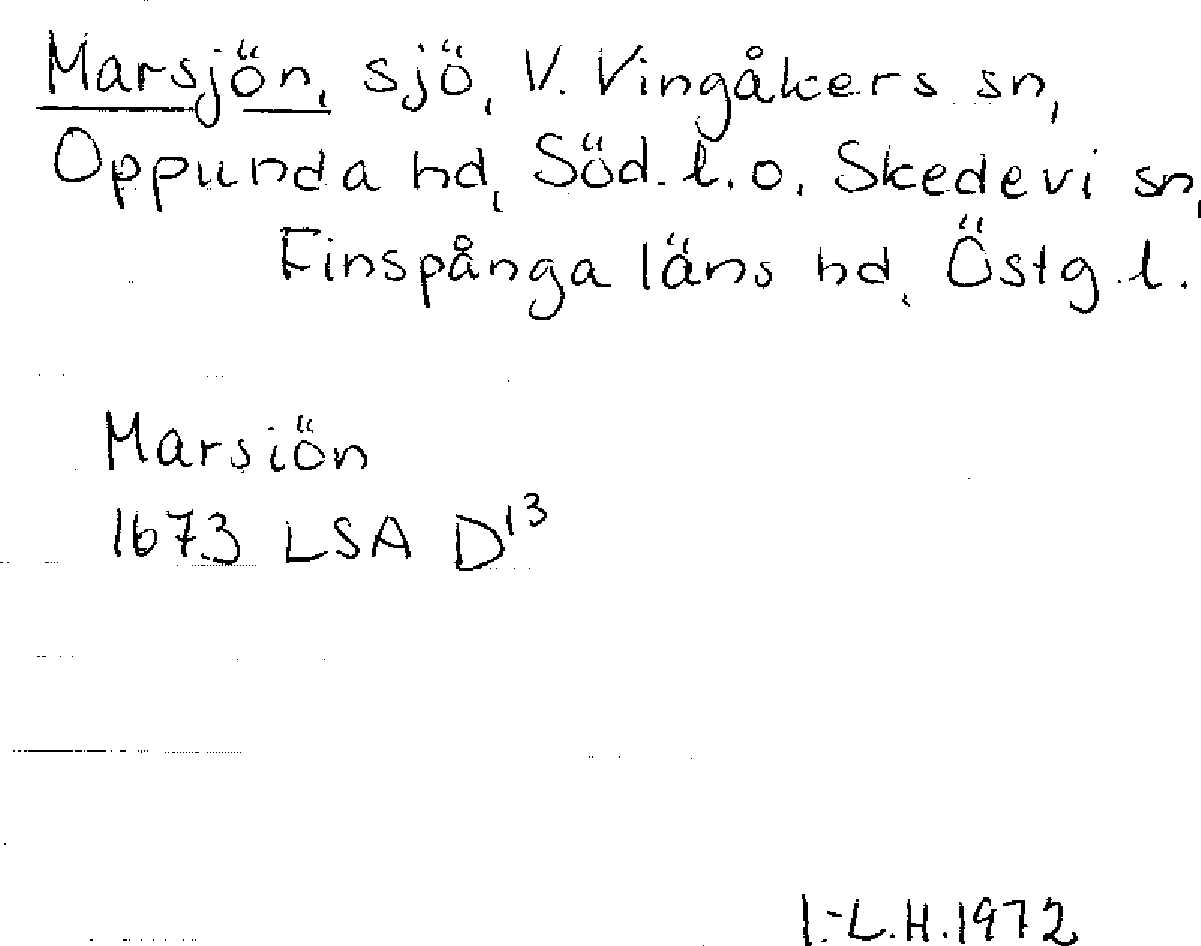 Marsjön, sjö, V. Vingåkers sn,
Oppunda hd, Söd. l. o. Skedevi sn,
Finspånga läns hd, Östg. l.
Marsiön
1673 LSA D13
I.-L.H. 1972